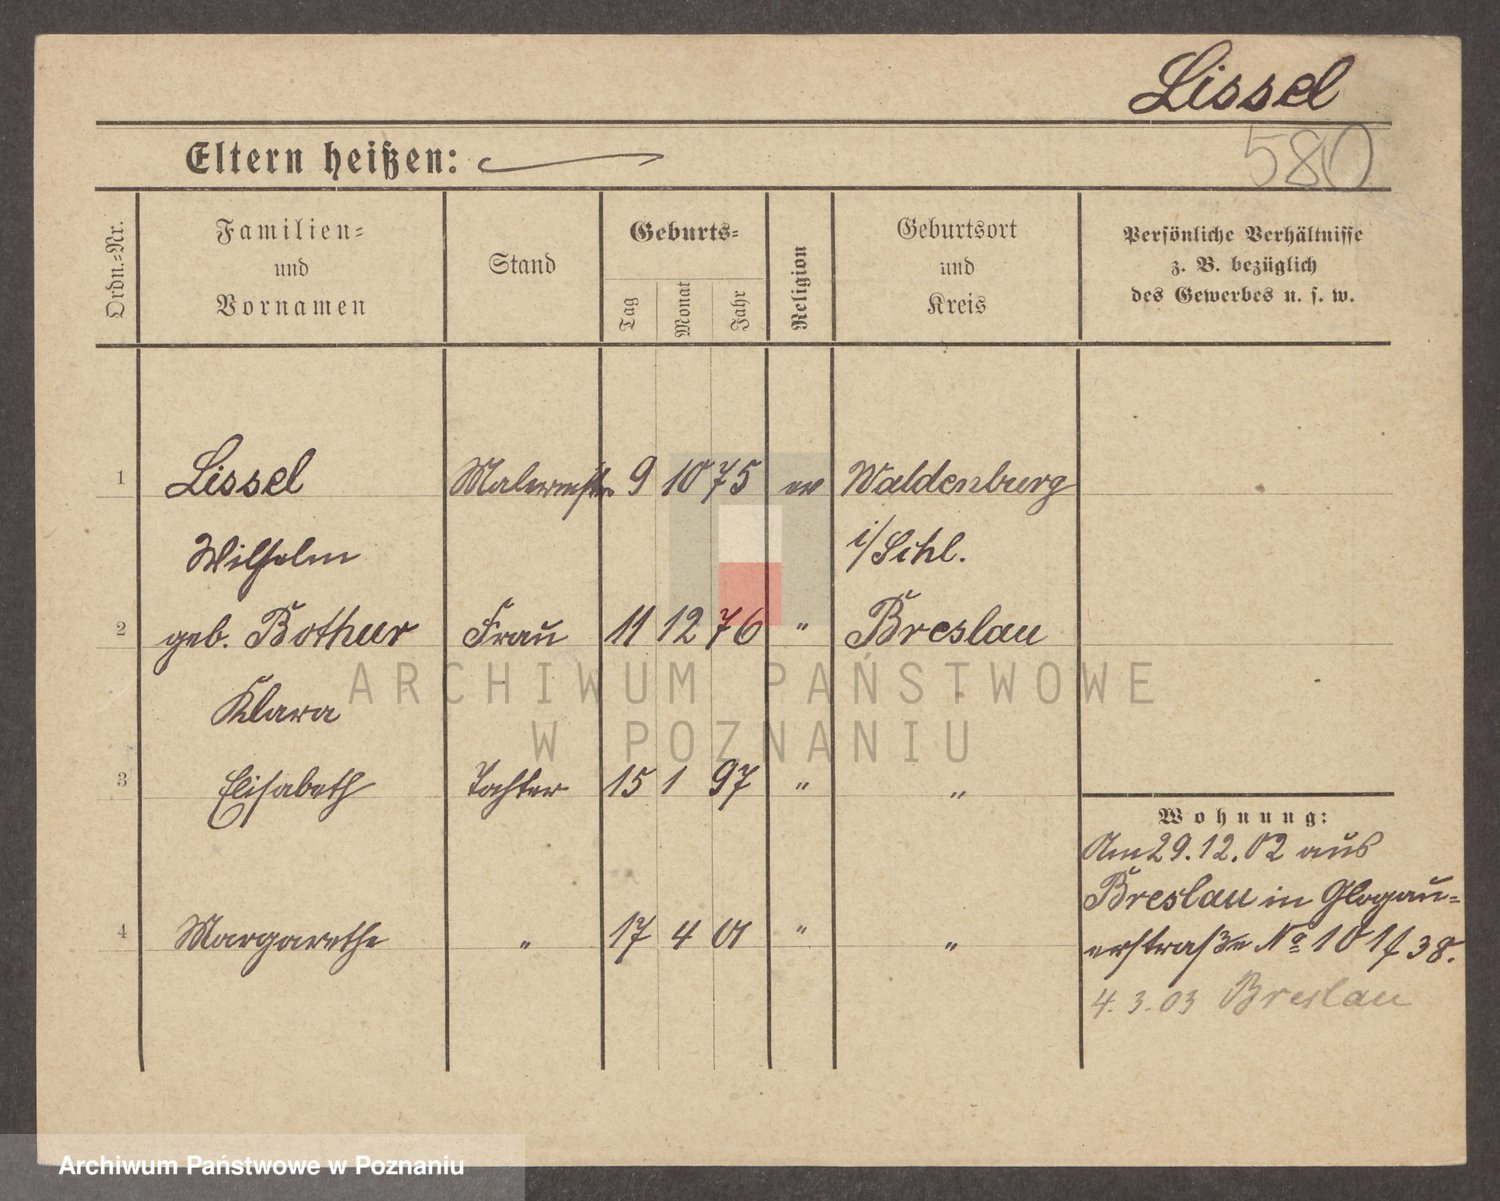 Lissel
580
Eltern heißen:
Ordn.-Nr.
Familien-
und
Vornamen
Stand
Geburts-
Tag
Monat
Jahr
Religion
Geburtsort
und
Kreis
Persönliche Verhältnisse
z. B. bezüglich
des Gewerbes u. s. w.
1 Lissel Malermstr 9 10 75 ev Waldenburg
Wilhelm i/Schl.
2 geb. Bothur Frau 11 12 76 " Breslau
Klara
3 Elisabeth Tochter 15 1 97 " "
4 Margarethe " 17 4 01 " "
Wohnung:
Am 29.12.02 aus
Breslau in Glogau-
erstraße No 101
4.3.03 Breslau
ARCHIWUM PAŃSTWOWE
W POZNANIU
Archiwum Państwowe w Poznaniu